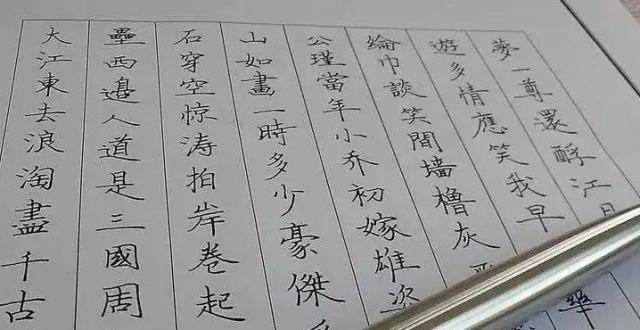 大江東去浪淘盡千古
壘西邊人道是三國周
石穿空惊涛拍岸卷起
山如畫一時多少豪傑
公瑾當年小乔初嫁雄姿
綸巾談笑間墙櫓灰
遊多情應笑我早華
夢一尊還酹江